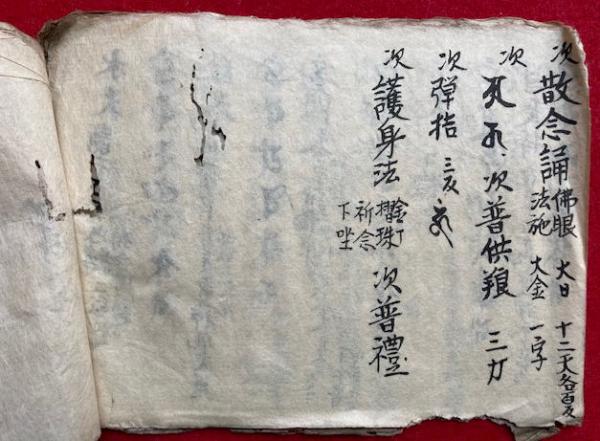 次散念誦 佛眼 大日 十二天各百反
法施 大金 一字
次 次普供養 三力
次彈指 三反
次護身法 金丁 摺珠 祈念 下坐 次普禮